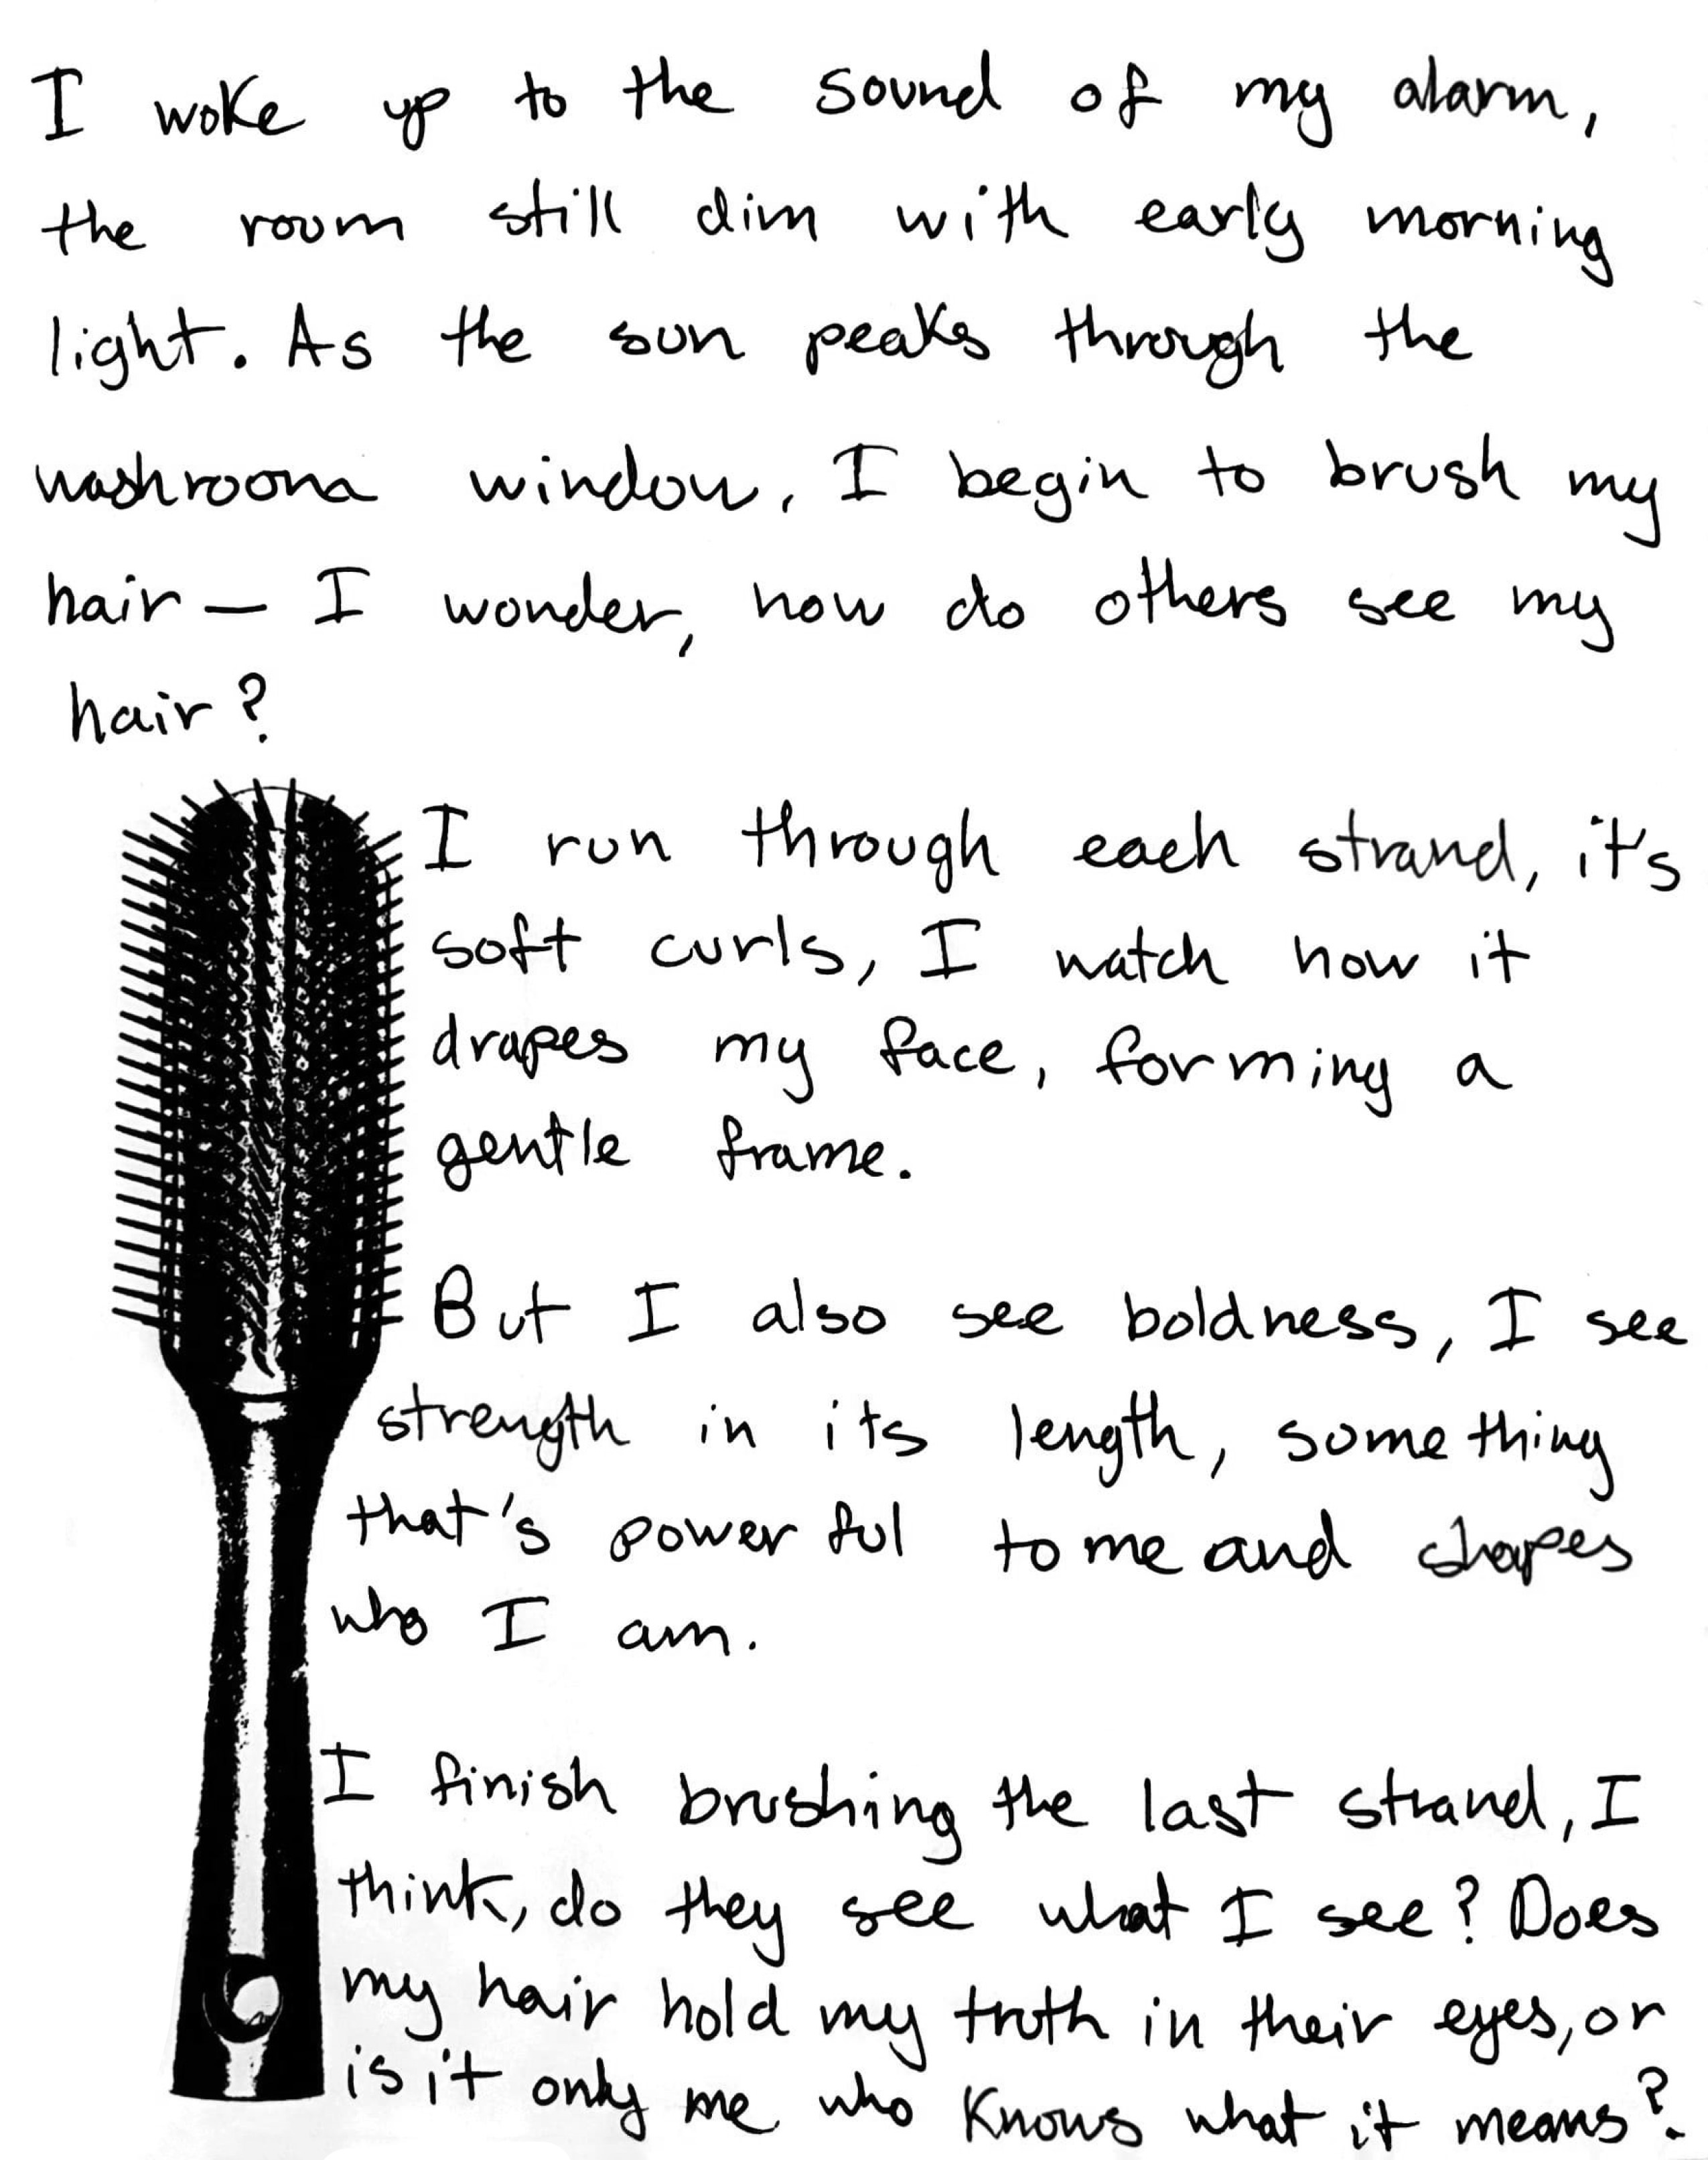 I woke up to the sound of my alarm,
the room still dim with early morning
light. As the sun peaks through the
washroom window, I begin to brush my
hair — I wonder, how do others see my
hair?
I run through each strand, it's
soft curls, I watch how it
drapes my face, forming a
gentle frame.
But I also see boldness, I see
strength in its length, something
that's powerful to me and shapes
who I am.
I finish brushing the last strand, I
think, do they see what I see? Does
my hair hold my truth in their eyes, or
is it only me who knows what it means?.